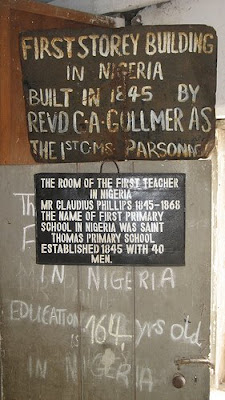 FIRST STOREY BUILDING
IN NIGERIA
BUILT IN 1845 BY
REVD C·A·GOLLMER AS
THE 1ST C·M·S· PARSONAGE
THE ROOM OF THE FIRST TEACHER
IN NIGERIA
MR CLAUDIUS PHILLIPS 1845-1868
THE NAME OF FIRST PRIMARY
SCHOOL IN NIGERIA WAS SAINT
THOMAS PRIMARY SCHOOL
ESTABLISHED 1845 WITH 40
MEN.
IN NIGERIA
EDUCATION is 164, yrs old
IN NIGERIA